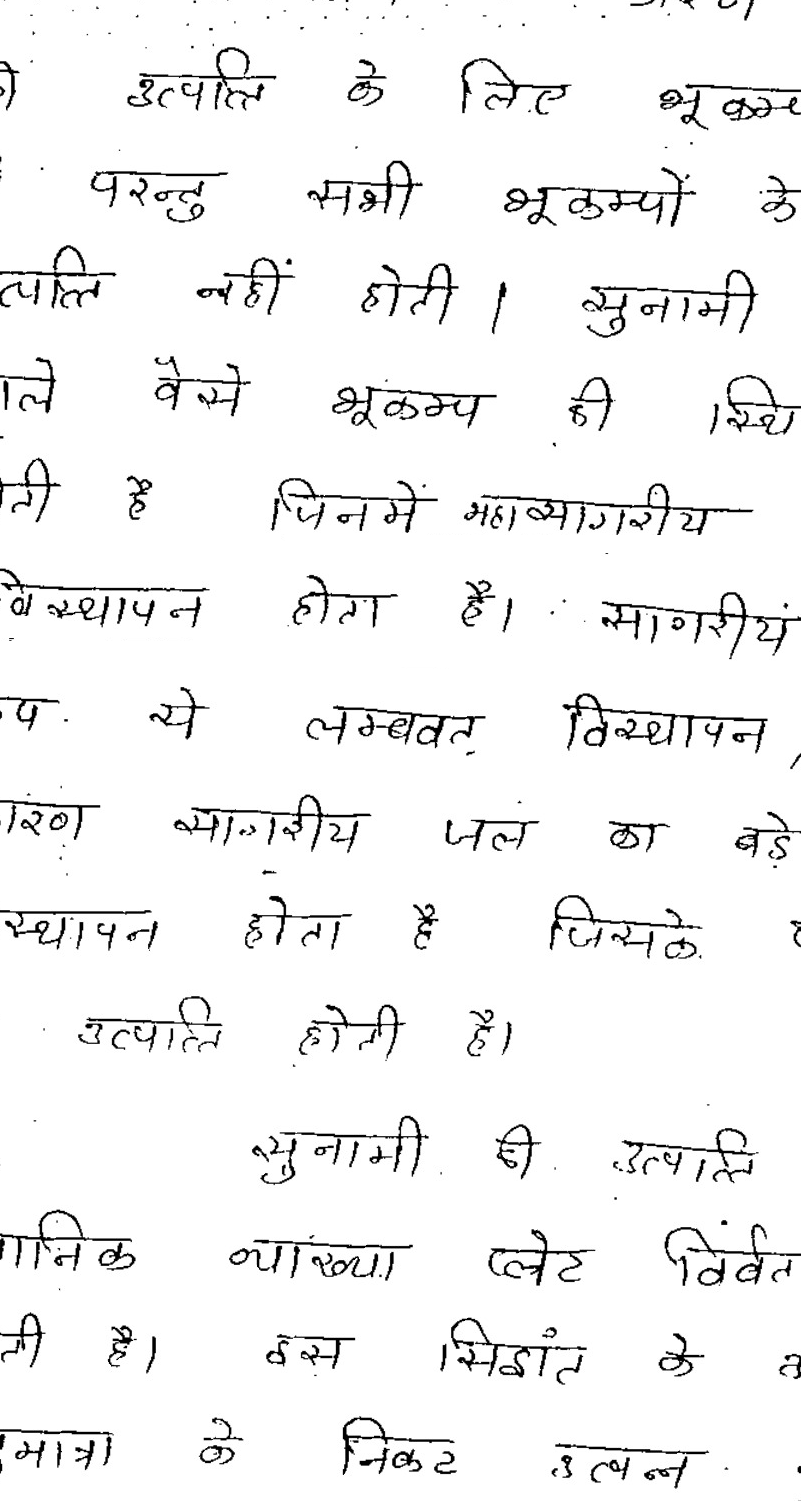 उत्पत्ति के लिए भूकम्प
परन्तु सभी भूकम्पों के
त्पत्ति नहीं होती। सुनामी
ले वैसे भूकम्प की स्थि
ती है जिनमें महासागरीय
विस्थापन होता है। सागरीय
प से लम्बवत विस्थापन,
ारण सागरीय जल का बड़े
स्थापन होता है जिसके
उत्पत्ति होती है।
सुनामी की उत्पत्ति
ानिक व्याख्या प्लेट विर्वत
ती है। इस सिद्धांत के
मात्रा के निकट उत्पन्न